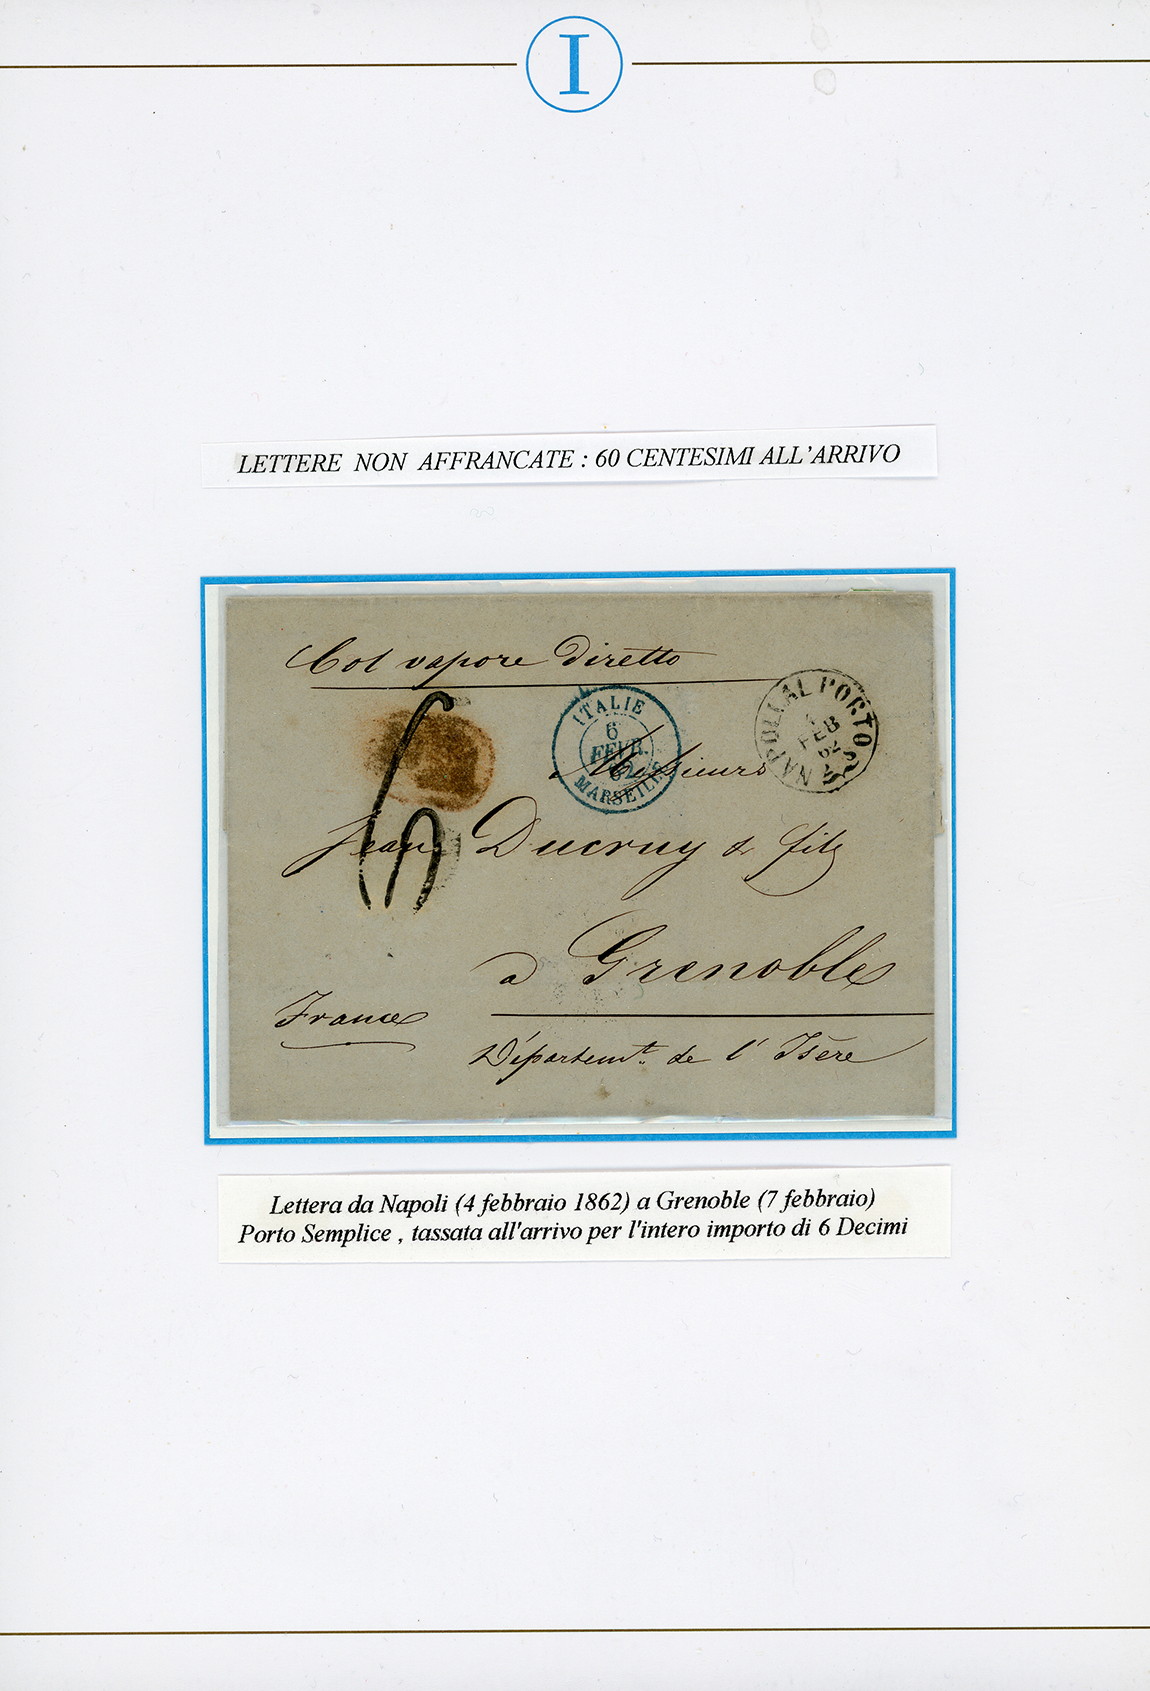 I
LETTERE NON AFFRANCATE : 60 CENTESIMI ALL'ARRIVO
Col vapore diretto
ITALIE
6
FEVR.
62
MARSEILLE
NAPOLI AL PORTO
FEB
62
Messieurs
Jean Ducruy & fils
à Grenoble
France
Départemt. de l'Isère
Lettera da Napoli (4 febbraio 1862) a Grenoble (7 febbraio)
Porto Semplice , tassata all'arrivo per l'intero importo di 6 Decimi